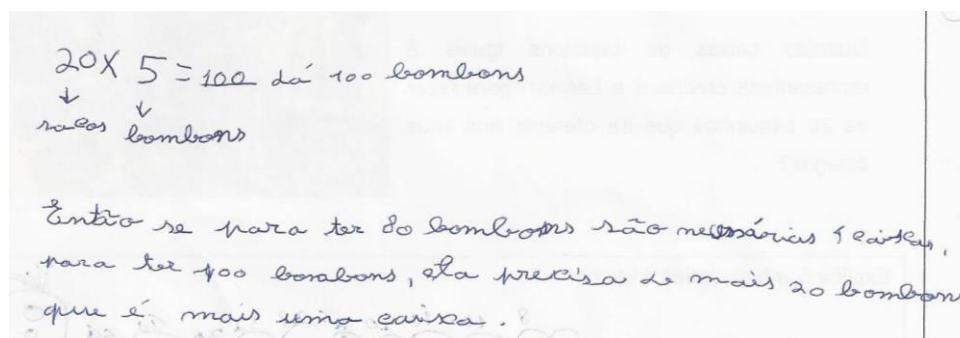 20x 5 = 100 dá 100 bombons
sacos bombons
Então se para ter 80 bombons são necessárias 4 caixas,
para ter 100 bombons, ela precisa de mais 20 bombons
que é mais uma caixa.